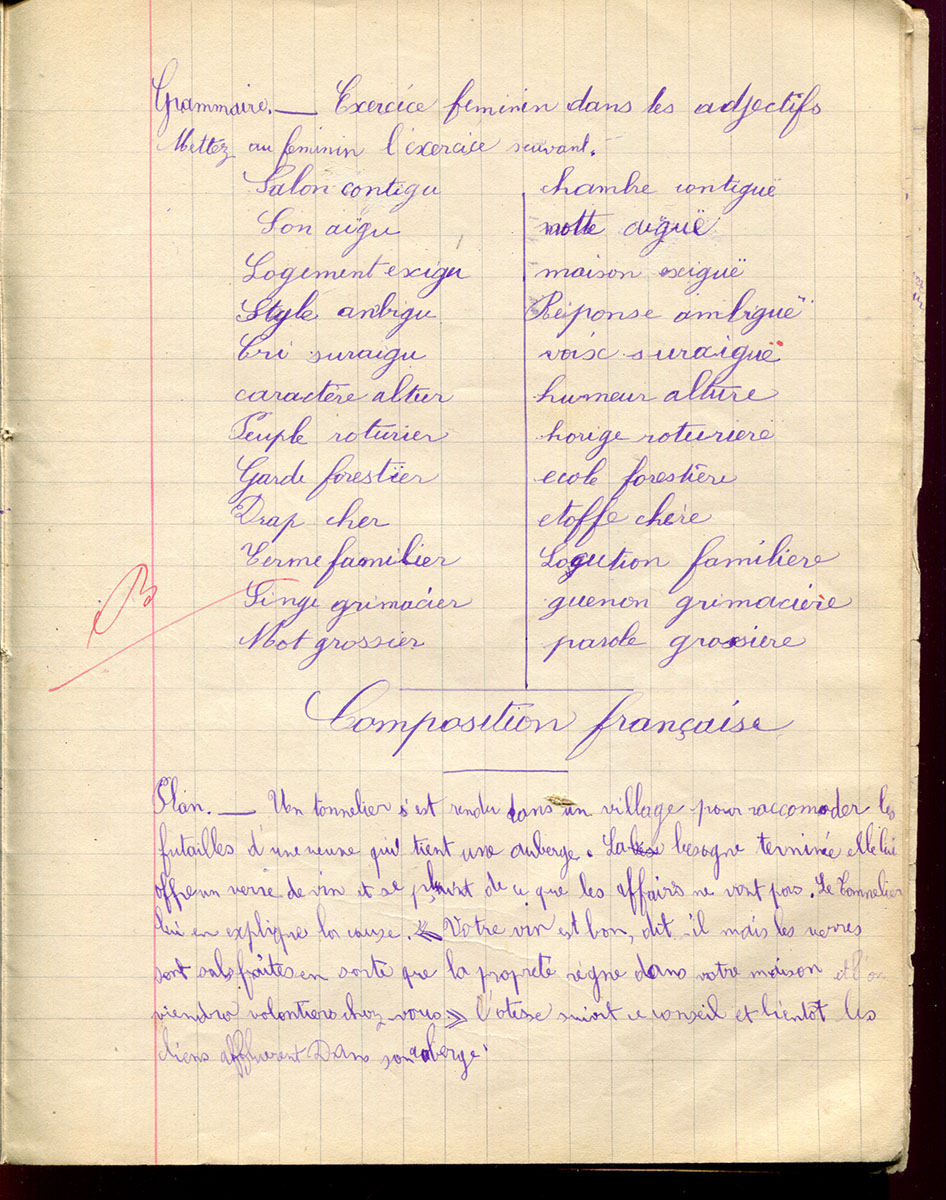 Grammaire. — Exercice feminin dans les adjectifs
Mettez au feminin l'exercice suivant.
Salon contigu chambre contiguë
Son aïgu notte aïguë
Logement exigu maison exiguë
Style ambigu Réponse ambiguë
Cri suraigu voix suraiguë
caractère altier humeur altiere
Peuple roturier roturiere
Garde forestier ecole forestière
Drap cher etoffe chere
Terme familier Locution familiere
Singe grimacier guenon grimacière
Mot grossier parole grossiere
B
Composition française
Plan. — Un tonnelier s'est rendu dans un village pour raccomoder les
futailles d'une veuve qui tient une auberge. La besogne terminée elle lui
offre un verre de vin et se plaint de ce que les affairs ne vont pas. Le Tonnelier
lui en explique la cause. « Votre vin est bon, dit-il mais les verres
sont sals faites en sorte que la propreté règne dans votre maison et l'on
viendra volontiers chez vous » L'otesse suivit ce conseil et bientôt les
cliens affluerent Dans son auberge.